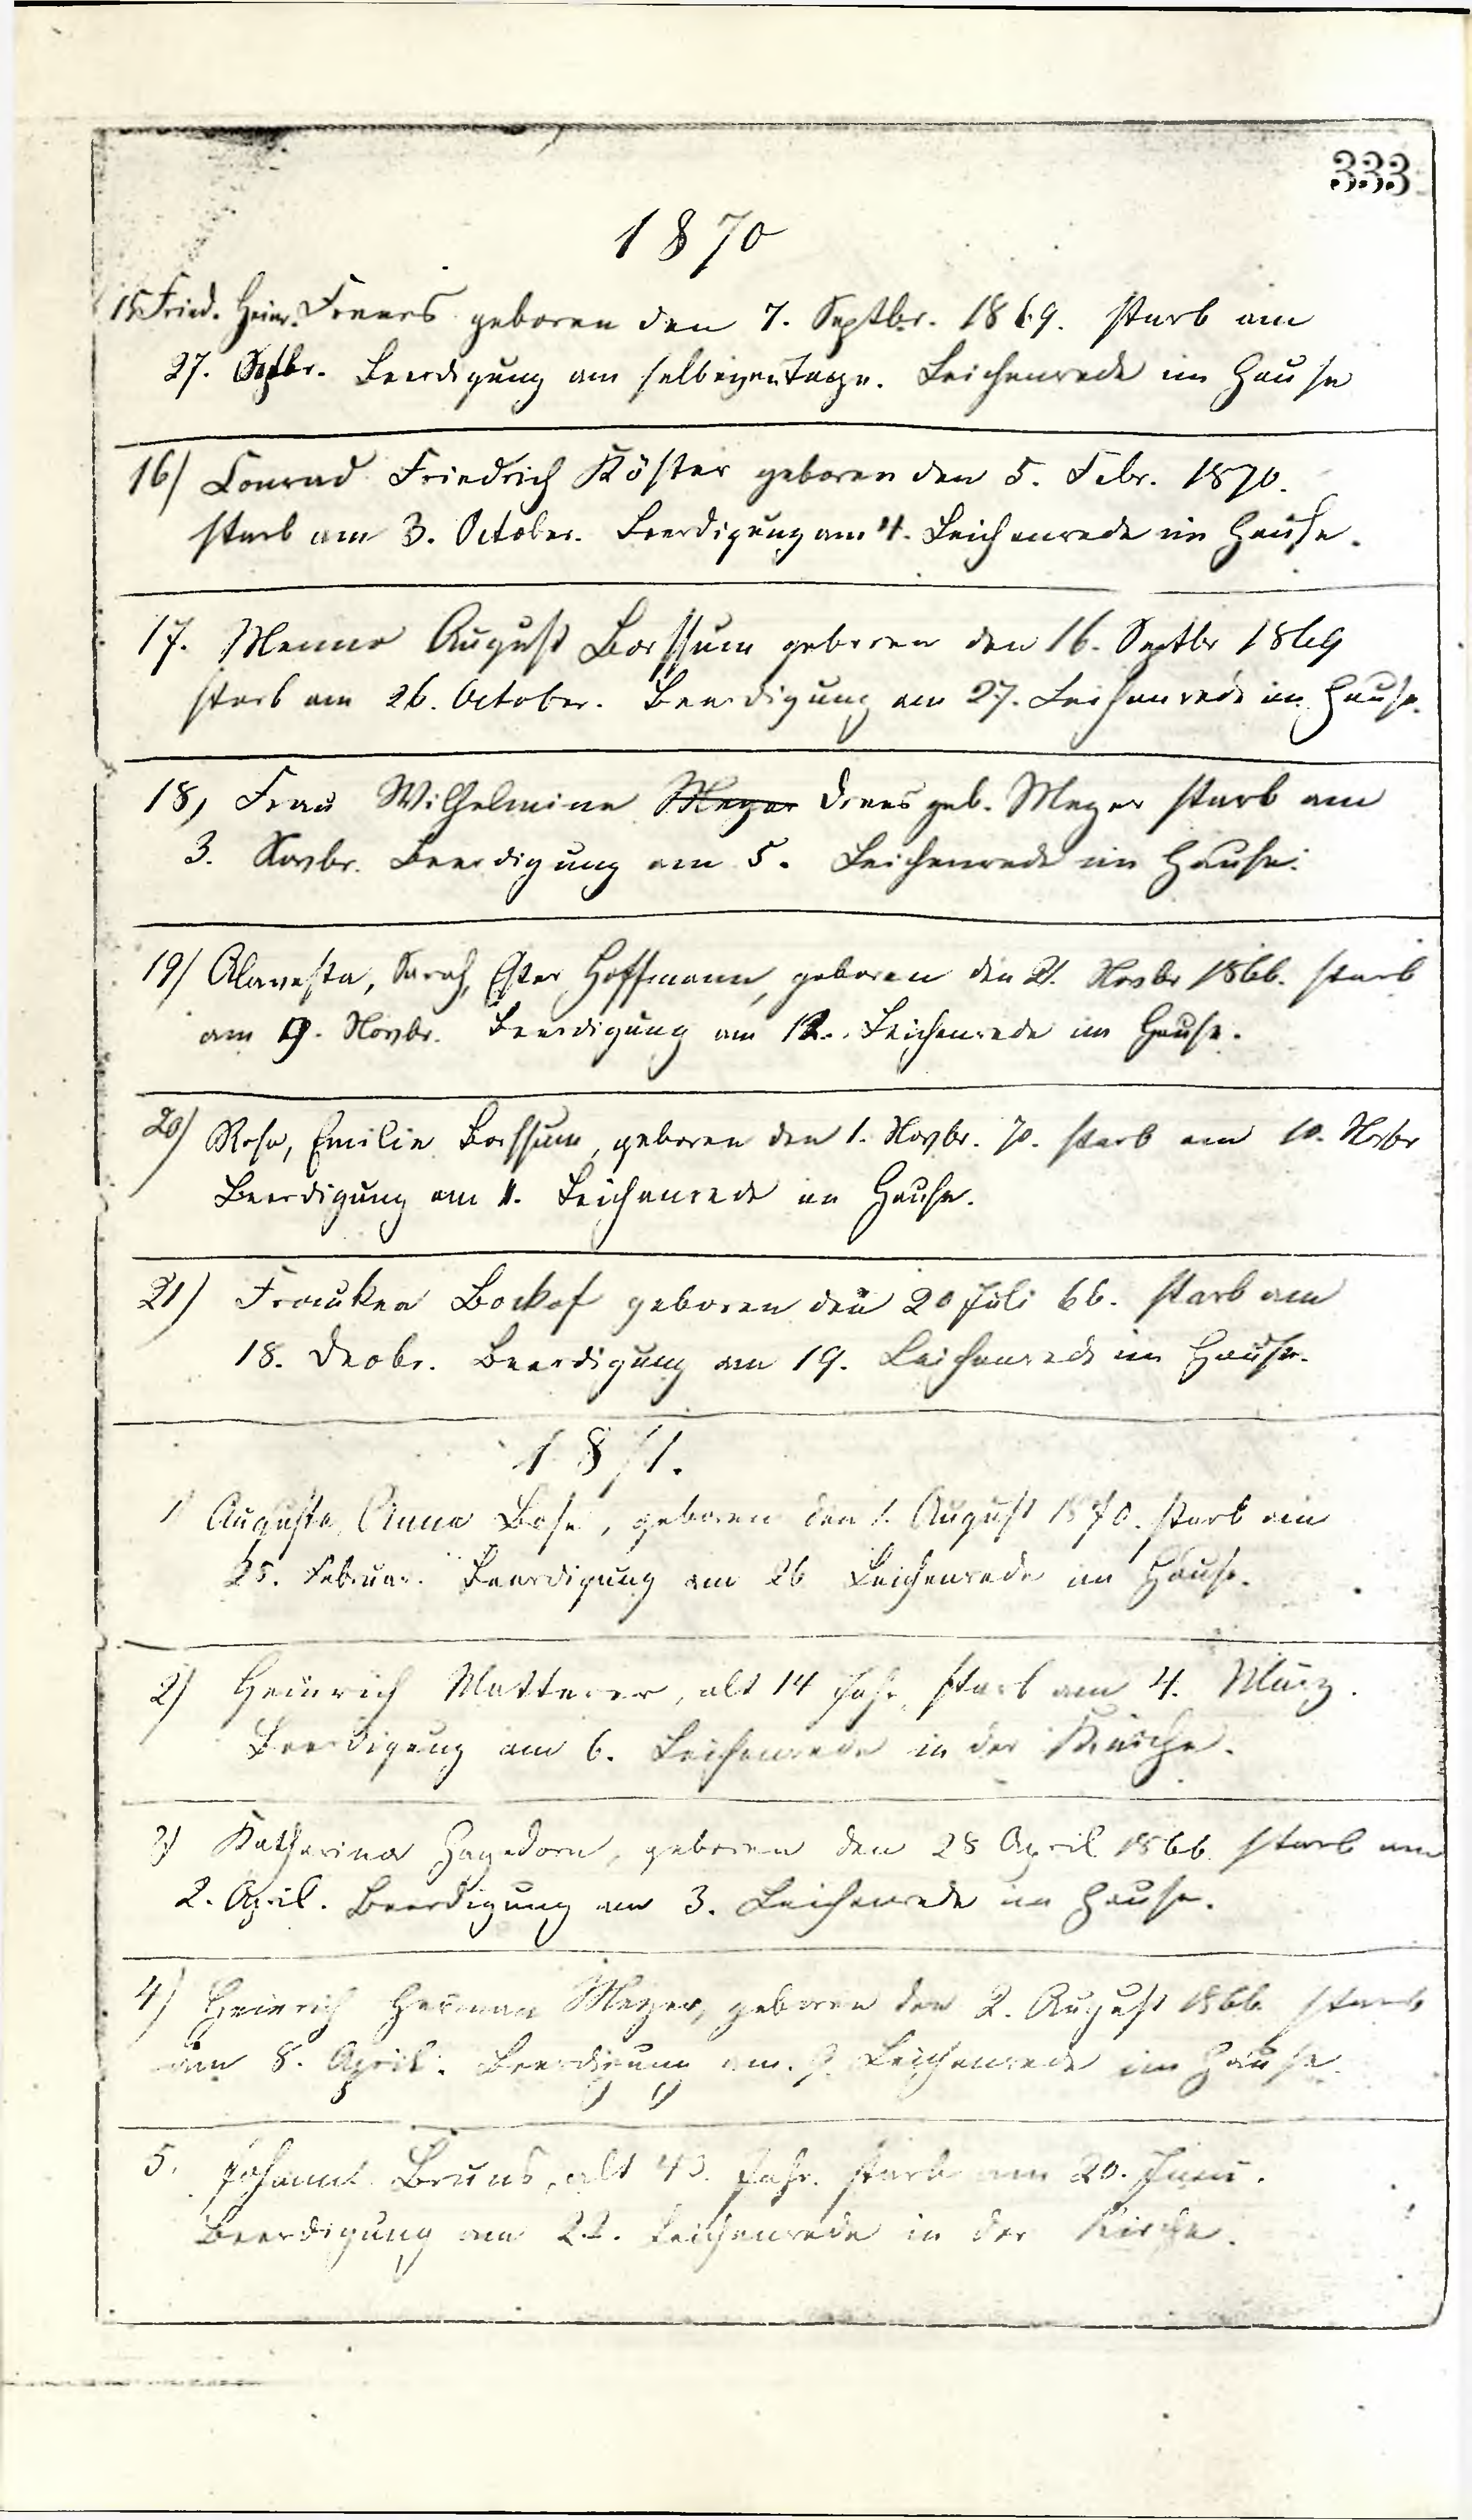 333
1870
15. Fried. Heinr. Freers geboren den 7. Septbr. 1869. starb am
27. Septbr. Beerdigung am selbigen Tage. Leichenrede im Hause
16) Conrad Friedrich Köster geboren den 5. Febr. 1870.
starb am 3. October. Beerdigung am 4. Leichenrede im Hause.
17. Menno August Borssum geboren den 16. Septbr 1869
starb am 26. October. Beerdigung am 27. Leichenrede im Hause.
18) Frau Wilhelmine Meyer Drees geb. Meyer starb am
3. Novbr. Beerdigung am 5. Leichenrede im Hause.
19) Sarah, Ester Hoffmann, geboren den 21. Novbr 1866. starb
am 9. Novbr. Beerdigung am 12. Leichenrede im Hause.
20) Rosa, Emilie Borssum, geboren den 1. Novbr. 70. starb am 10. Novbr
Beerdigung am 11. Leichenrede im Hause.
21) Frauken Bockof geboren den 20 Juli 66. starb am
18. Decbr. Beerdigung am 19. Leichenrede im Hause.
1871.
1) Auguste, Anna Bose, geboren den 1. August 1870. starb am
25. Februar. Beerdigung am 26 Leichenrede im Hause.
2) Heinrich Matterer, alt 14 Jahr, starb am 4. März.
Beerdigung am 6. Leichenrede in der Kirche.
3) Katharina Hagedorn, geboren den 28 April 1866. starb am
2. April. Beerdigung am 3. Leichenrede im Hause.
4) Heinrich Herman Meyer, geboren den 2. August 1866 starb
am 8. April. Beerdigung am 9. Leichenrede im Hause.
5. Johann Bruns, alt 43. Jahr. starb am 20. Juni.
Beerdigung am 22. Leichenrede in der Kirche.